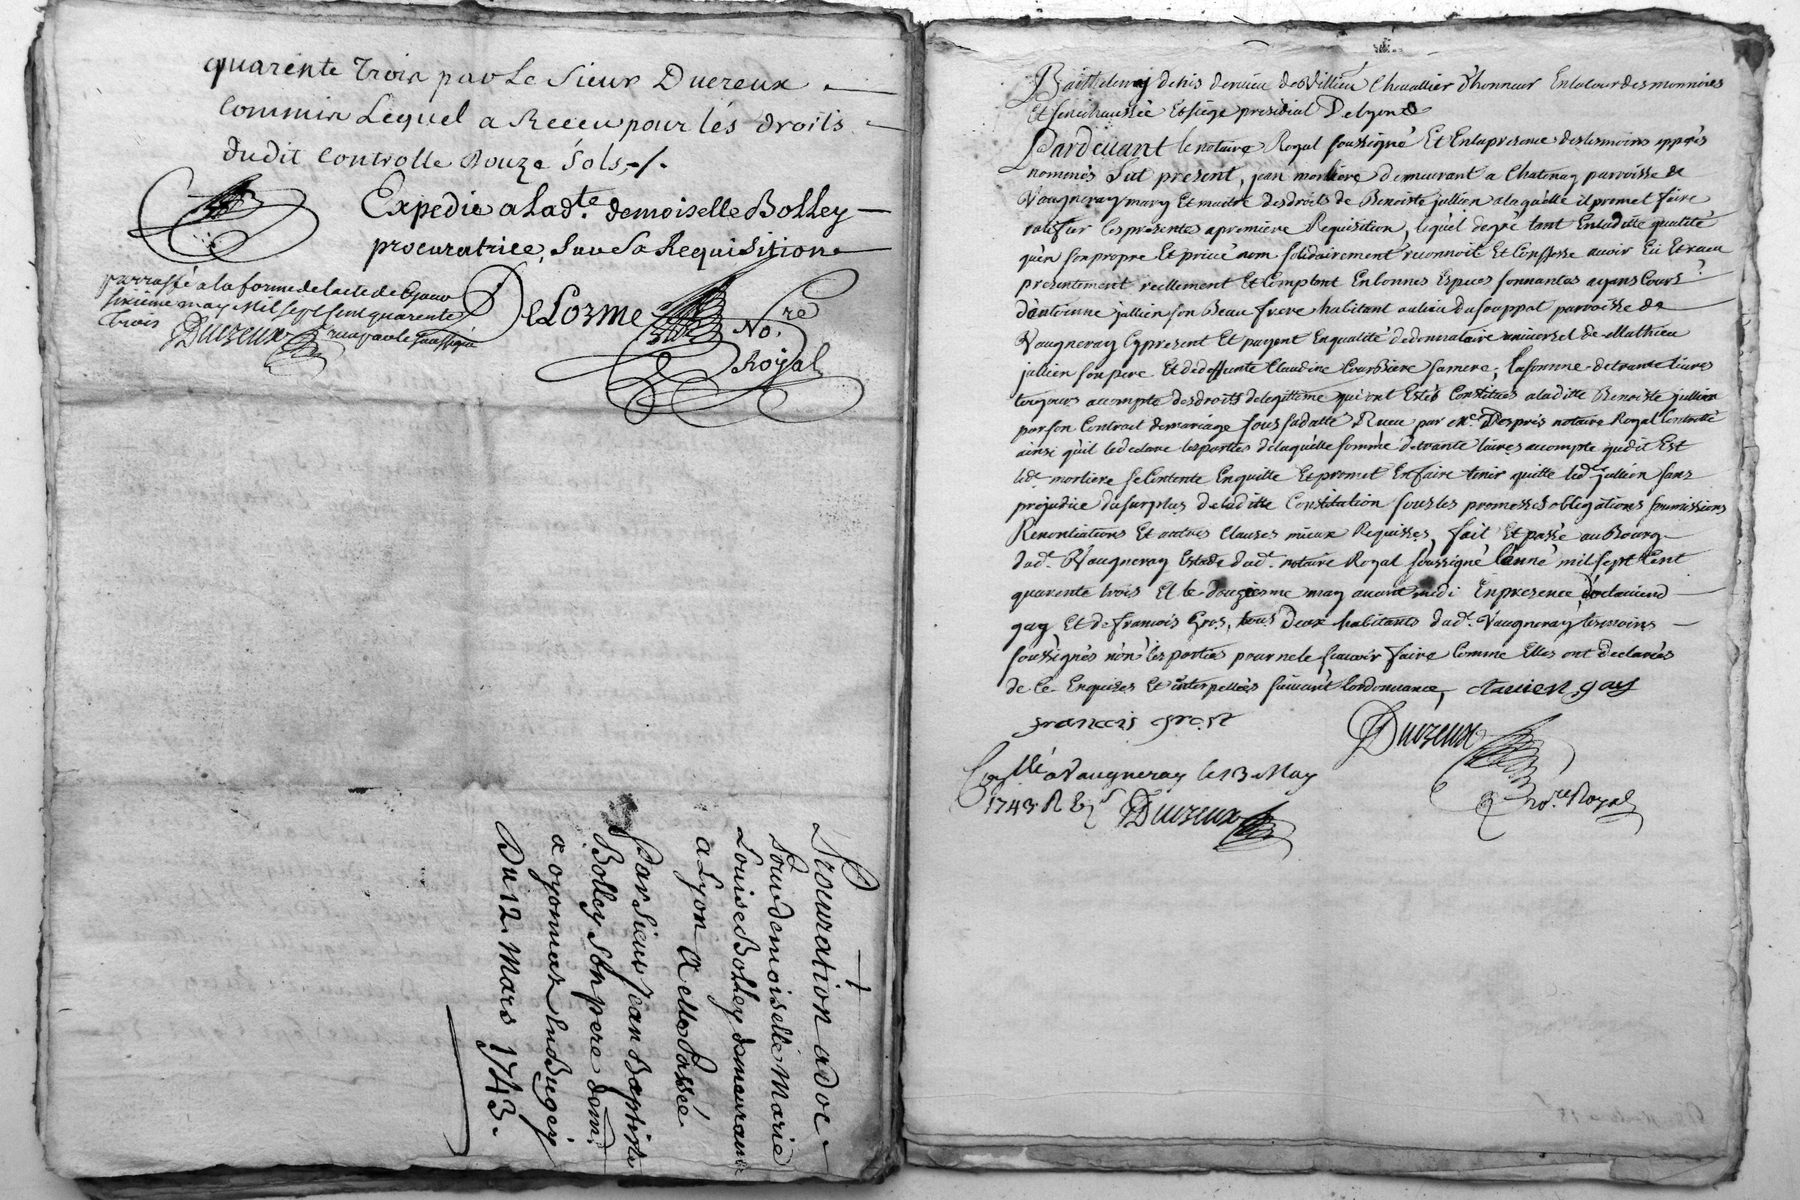 quarente trois par Le Sieur Ducreux
Commis Lequel a Receu pour lés droits
dudit Controlle Douze Sols ./.
Expedié a Lad.te demoiselle Bolley
procuratrice, Sur Sa Requisition
parraffé a la forme de lacte de Ce jour
sixieme may Mil sept Cent quarente
trois Ducreux
DeLorme No.re
Royal
Procuration ad oc
Pour demoiselle Marie
Louise Bolley demeurant
a Lyon A elle Passée
Par Sieur Jean Baptiste
Bolley Son pere dem.t
a oyonnax En Bugey
Du 12 Mars 1743.
Barthelemy de Villieu Chevallier d'honneur En la Cour des monnoies
Et Senechaussée Et siége presidial De Lyon
Pardevant le notaire Royal soussigné Et En la presence des temoins apprès
nommés fut présent, jean morliere demeurant a Chatenay parroisse de
Vaugneray mary Et maitre des droits de Benoiste jullien a laquelle il promet faire
ratiffier les presentes a premiere Requisition, lequel de gré tant En laditte qualité
qu'en son propre Et privé nom solidairement reconnoit Et Confesse avoir Eü Et receu
presentement reellement Et Comptant En bonnes Especes sonnantes ayans Cours
d'antoinne jullien son Beau frere habitant au lieu du parroisse de
Vaugneray Cy present Et payant En qualité de donnataire universel de Mathieu
jullien son pere Et de deffunte Claudine sa mere, la somme de trante livres
tournois a compte des droits de legittime qui ont Estés Constitués a laditte Benoiste jullien
par son Contract de mariage sous sa datte Receu par Me. Desprès notaire Royal Controllé
ainsi qu'il le declare les parties de laquelle somme de trante livres a compte que dit Est
led. morliere se Contente En quitte Et promet En faire tenir quitte led. jullien sans
prejudice du surplus de laditte Constitution sous les promesses obligations soumissions
Renontiations Et autres Clauses mieux Requises, fait Et passé au Bourg
dud. Vaugneray Estude dud. notaire Royal soussigné l'anné mil sept Cent
quarente trois Et le douziesme may avant midi En presence
gay Et de francois Gros, tous Deux habitants dud. Vaugneray temoins
soussignés non les parties pour ne le scavoir faire Comme Elles ont declarées
de Ce Enquises Et interpellées suivant l'ordonnance, gay
francois gros
Ducreux
no.re Royal
Con.llé a Vaugneray le 13 May
1743 R
Ducreux